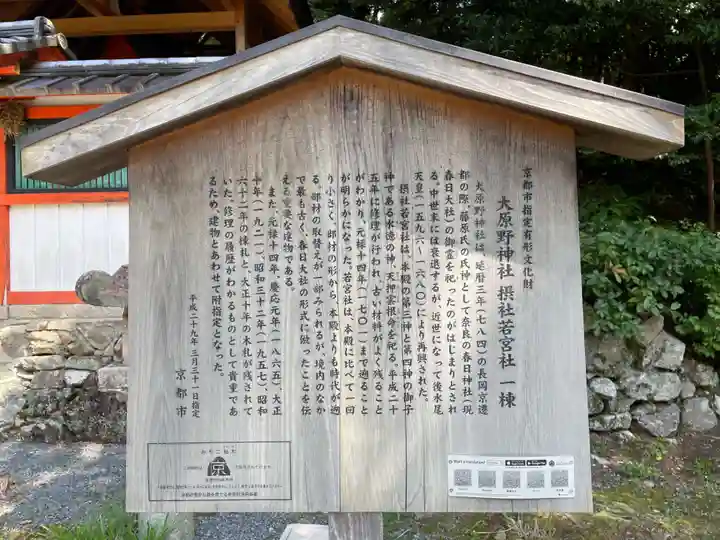 京都市指定有形文化財
大原野神社 摂社若宮社 一棟
大原野神社は、延暦三年(七八四)の長岡京遷
都の際、藤原氏の氏神として奈良の春日神社(現
春日大社)の御霊を祀ったのがはじまりとされ
る。中世末には衰退するが、近世になって後水尾
天皇(一五九六-一六八〇)により再興された。
摂社若宮社は、本殿の第三神と第四神の御子
神である水徳の神、天押雲根命を祀る。平成二十
五年に修理が行われ、古い材料がよく残ること
がわかり、元禄十四年(一七〇一)まで遡ること
が明らかになった。若宮社は、本殿に比べて一回
り小さく、部材の形から、本殿よりも時代が遡
る。部材の取替えが一部みられるが、境内のなか
で最も古く、春日大社の形式に倣ったことを伝
える重要な建物である。
また、元禄十四年、慶応元年(一八六五)、大正
十年(一九二一)、昭和三十二年(一九五七)、昭和
六十二年の棟札と、大正十年の木札が残されて
いた。修理の履歴がわかるものとして貴重であ
るため、建物とあわせて附指定となった。
平成二十九年三月三十一日指定
京都市
京